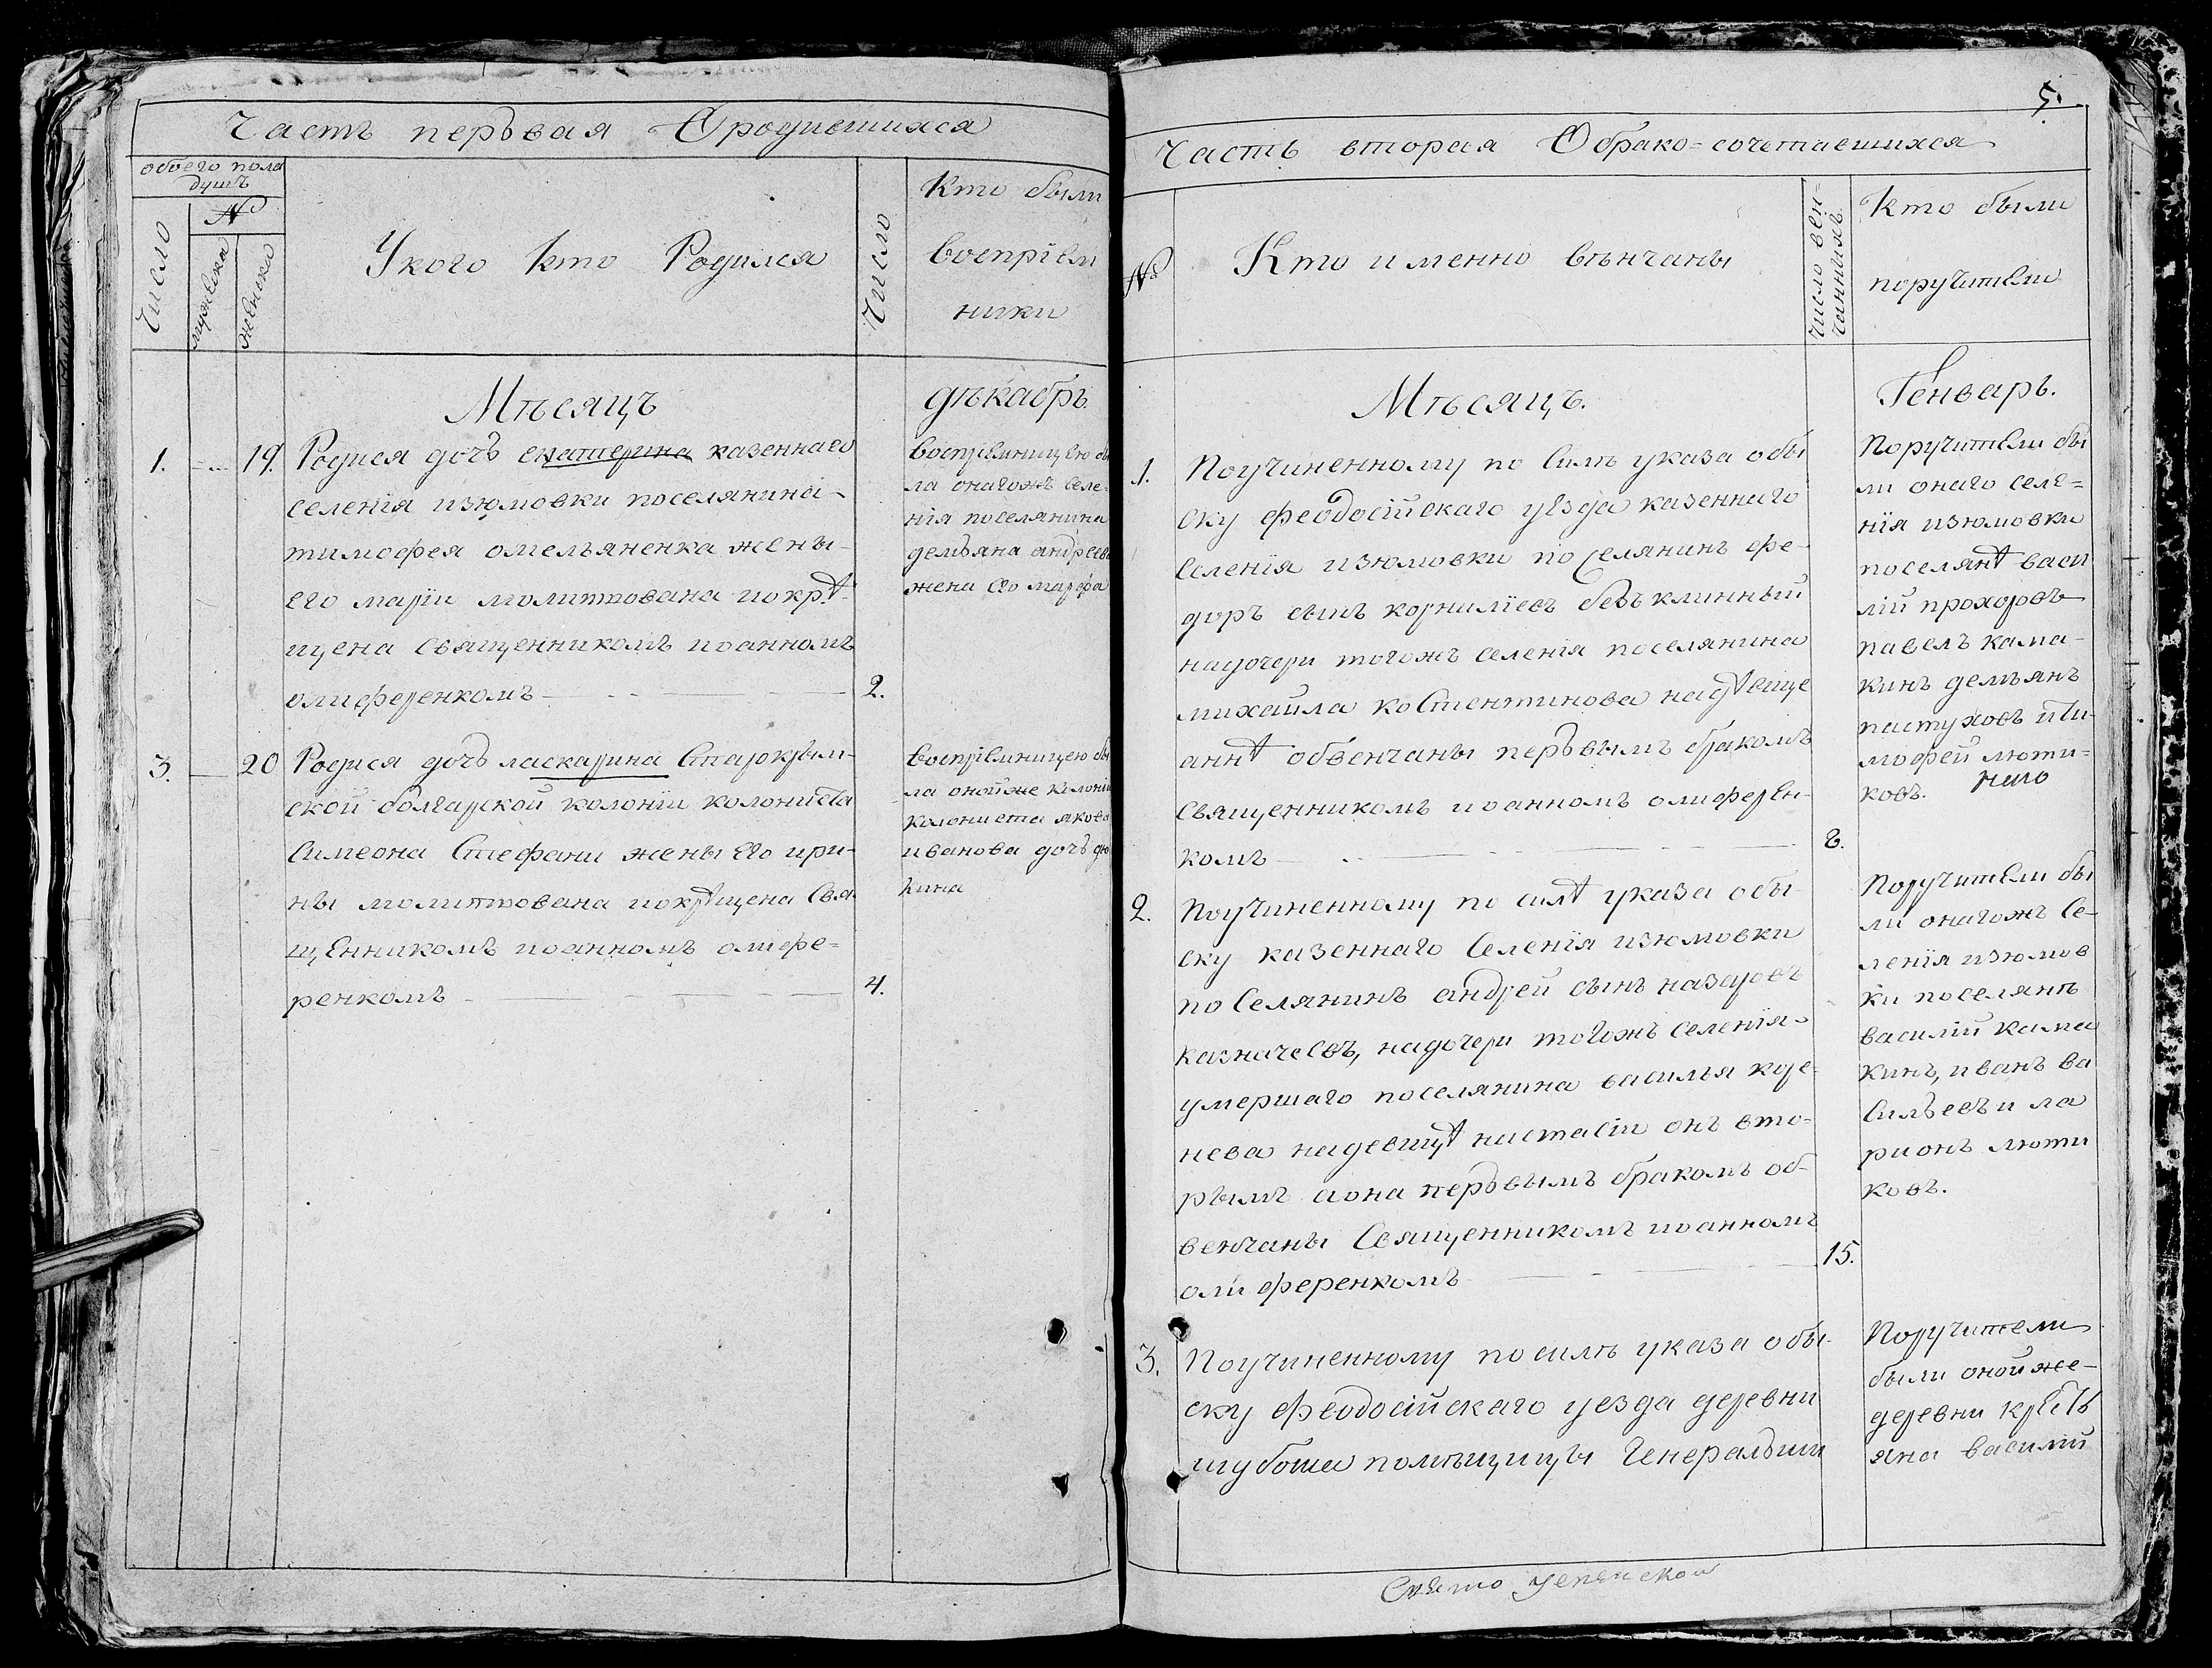 Часть первая О родившихся
обоего пола
душъ
Число
№
мужеска
женска
У кого кто Родился
Число
Кто были
воспріем
ники
Мѣсяцъ
дѣкабрь.
1.
19.
Родися дочь екатерина казеннаго
селенія изюмовки поселянина
тимофея омельяненка жены
его маріи молитвована и кр.ѣ
щена священникомъ иоанномъ
олиференкомъ
2.
воспріемницею бы
ла онагожъ селе-
нія поселянина
демьяна андреева
жена его марфа
3.
20
Родися дочь ласкарина Старокрым-
ской болгарской колоніи колониста
Симеона Стефани жены его ири-
ны молитвована и крѣщена Свя-
щенникомъ иоанномъ олифе=
ренкомъ
4.
воспріемницею бы
ла онойже колоніи
колониста якова
иванова дочь дю
кина
5.
Часть вторая О брако=сочетавшихся
№
Кто именно вѣнчаны
Число вен-
чанныхъ.
Кто были
поручители
Мѣсяцъ.
Генварь.
1.
По учиненному по Силѣ указа обы
ску феодосійскаго уѣзда казеннаго
селенія изюмовки поселянинъ фе-
доръ сынъ корниліевъ безъклинный
на дочери тогожъ селенія поселянина
михайла костентинова на дѣвице
аннѣ обвенчаны первымъ бракомъ
священникомъ иоанномъ олиферен-
комъ
8.
Поручители бы
ли онаго селе=
нія изюмовки
поселянѣ васи
лій прохоровъ
павелъ кама-
кинъ демьянъ
пастуховъ и ти-
мофей люти=
ковъ.
2.
По учиненному по силѣ указа обы
ску казеннаго Селенія изюмовки
поселянинъ андрей сынъ назаровъ
казначеевъ, на дочери тогожъ селенія
умершаго поселянина василья коре=
нева на девицѣ настасіи онъ вто=
рымъ а она первымъ бракомъ об-
венчаны Священникомъ иоанномъ
олиференкомъ
15.
Поручители бы
ли онагожъ Се-
ленія изюмов
ки поселянѣ
василій кама
кинъ, иванъ ва
сильевъ и ла
рионъ люти
ковъ.
3.
По учиненному по силѣ указа обы-
ску феодосійскаго уезда деревни
шубоша помѣщицы Генеральши
Поручители
были онойже-
деревни крестѣ
яна василій
Свято успенской